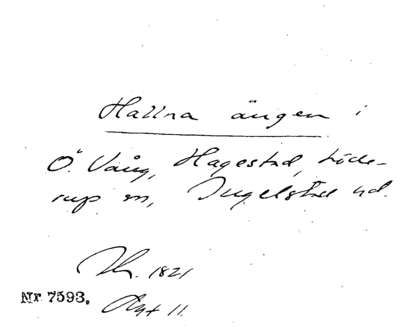 Hallna ängen i
Ö. Vång, Hagestad, Löde-
rup sn, Ingelstad hd.
1821
Nr 7593. Akt 11.